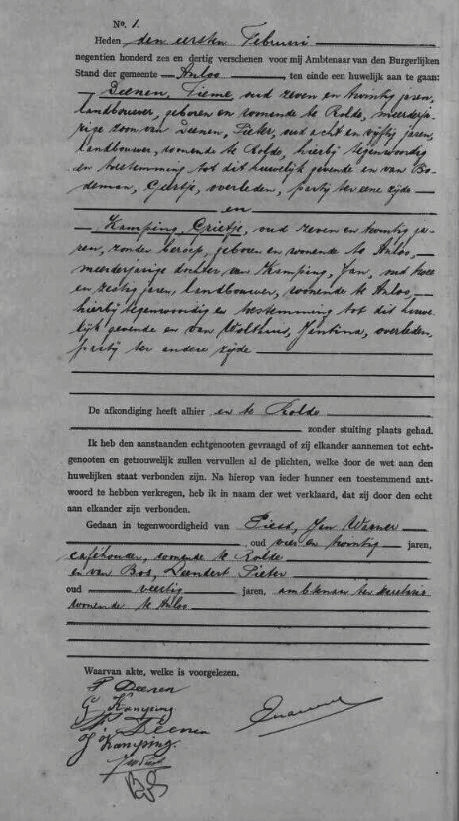 No. 1.
Heden den eersten Februari
negentien honderd zes en dertig verschenen voor mij Ambtenaar van den Burgerlijken
Stand der gemeente Anloo, ten einde een huwelijk aan te gaan:
Deenen, Tieme, oud zeven en twintig jaren,
landbouwer, geboren en wonende te Rolde, meerderja-
rige zoon van Deenen, Pieter, oud acht en vijftig jaren,
landbouwer, wonende te Rolde, hierbij tegenwoordig
en toestemming tot dit huwelijk gevende en van Bo-
deman, Geertje, overleden, partij ter eene zijde
en
Kamping, Grietje, oud zeven en twintig ja-
ren, zonder beroep, geboren en wonende te Anloo,
meerderjarige dochter van Kamping, Jan, oud twee
en zestig jaren, landbouwer, wonende te Anloo,
hierbij tegenwoordig en toestemming tot dit huwe-
lijk gevende en van Wolthuis, Jantina, overleden,
partij ter andere zijde
De afkondiging heeft alhier en te Rolde
zonder stuiting plaats gehad.
Ik heb den aanstaanden echtgenooten gevraagd of zij elkander aannemen tot echt-
genooten en getrouwelijk zullen vervullen al de plichten, welke door de wet aan den
huwelijken staat verbonden zijn. Na hierop van ieder hunner een toestemmend ant-
woord te hebben verkregen, heb ik in naam der wet verklaard, dat zij door den echt
aan elkander zijn verbonden.
Gedaan in tegenwoordigheid van Jan Warner
, oud vier en twintig jaren,
caféhouder, wonende te Rolde
en van Bos, Leendert Pieter
oud veertig jaren, ambtenaar ter secretarie
wonende te Anloo
Waarvan akte, welke is voorgelezen.
T Deenen
G Kamping
P Deenen
J Kamping.